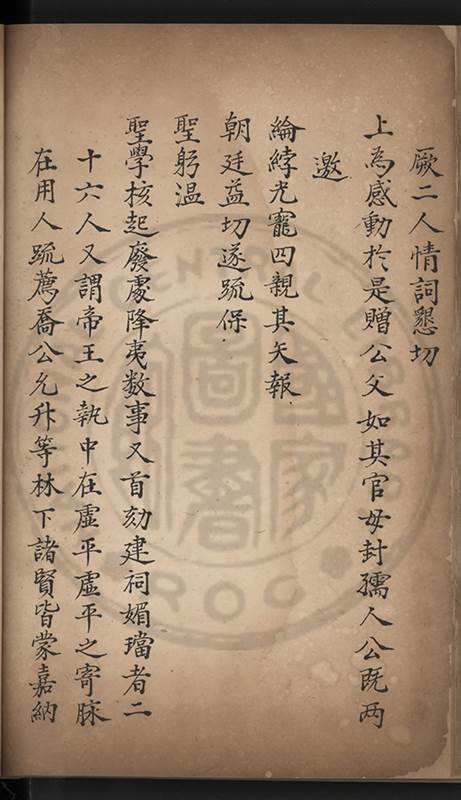 厥二人情詞懇切
上為感動於是贈公父如其官母封孺人公既两
邀
綸綍光寵四親其矢報
朝廷益切遂疏保
聖躬温
聖學核起廢處降夷数事又首劾建祠媚璫者二
十六人又謂帝王之執中在虛平虛平之寄脉
在用人疏薦喬公允升等林下諸賢皆蒙嘉納
CENTRAL
ROC
國家
圖書